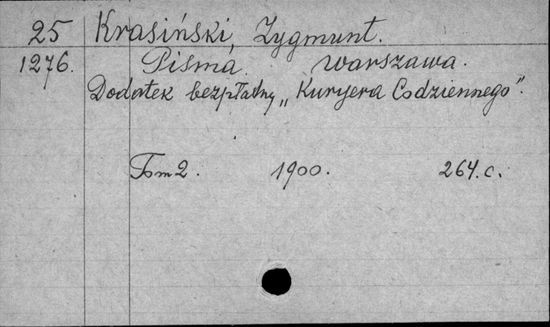 25 Krasiński, Zygmunt.
1276. Pisma. Warszawa.
Dodatek bezpłatny „Kuryera Codziennego".
Tom 2. 1900. 264.c.